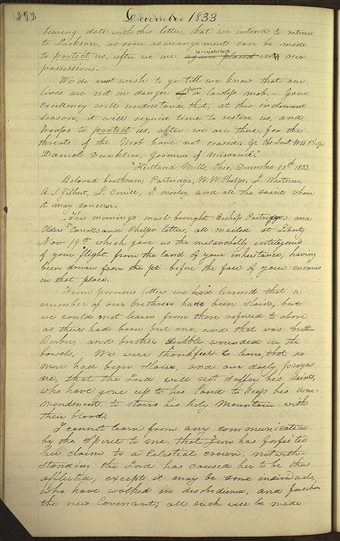 393
December 1833.
bearing date with this letter, that we intend to return
to Jackson, as soon as arrangements can be made
to protect us, after we are reinstated into our
possessions.
We do not wish to go till we know that our
lives are not in danger from a lawless mob.— Your
Excellency will understand that, at this inclement
Season, it will require time to restore us, and
troops to protect us, after we are there, for the
threats of the Mob have not ceased. Yr. Obt. Servt. W. W. Phelps
Daniel Dunklin, Governor of Missouri."
"Kirtland Mills, Ohio, December 10th 1833.
Beloved brethren, Partridge, W. W. Phelps, J. Whitmer,
A. S. Gilbert, J. Corrill, I. Morley and all the saints whom
it may concern.
This morning's mail brought Bishop Partridge's and
Elders Corrill and Phelps letters, all mailed at Liberty
Nov 19th which gave us the melancholy intelligence
of your flight from the land of your inheritance, having
been driven from the before the face of your enemies
in that place.
From previous letters we had learned that a
number of our brethren had been slain, but
we could not learn from those referred to above
as there had been but one, and that was brother
Barber, and brother Dibble wounded in the
bowels, We were thankful to learn, that no
more had been slain, and our daily prayers
are, that the Lord will not suffer his Saints,
who have gone up to his land to keep his com-
mandments, to stain his holy Mountain with
their blood.
I cannot learn from any communication
by the Spirit to me, that Zion has forfeited
her claim to a Celestial crown, notwith-
standing the Lord has caused her to be thus
afflicted, except it may be some individuals,
who have walked in disobedience, and forsaken
the new Covenant; all such will be made